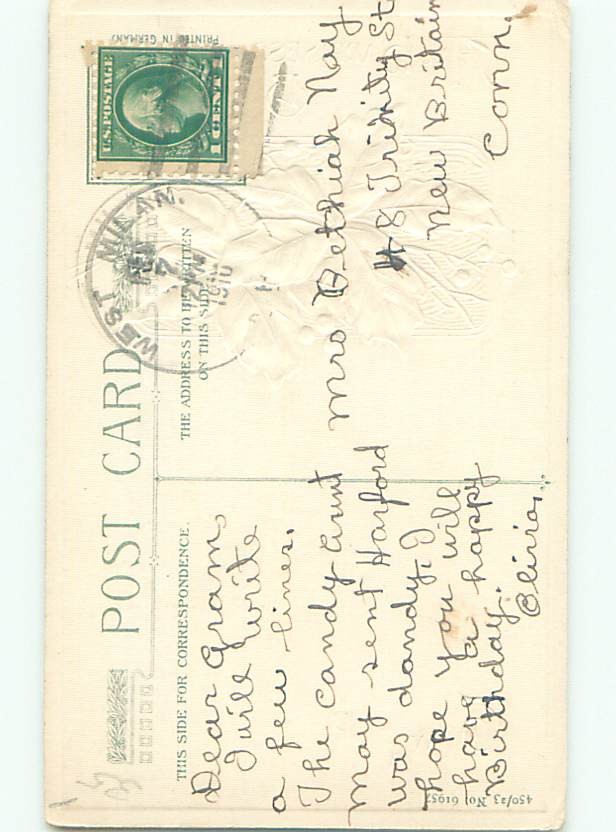 POST CARD
THIS SIDE FOR CORRESPONDENCE.
THE ADDRESS TO BE WRITTEN
ON THIS SIDE
PRINTED IN GERMANY
U.S. POSTAGE
1 CENT 1
WEST MILAN,
1916
Dear Gram
I will write
a few lines.
The candy aunt
may sent Harford
was dandy, I
hope you will
have a happy
Birthday.
Olivia,
Mrs Bethiah Nay
48 Trinity St
New Britain
Conn.
450/23 No. 61957